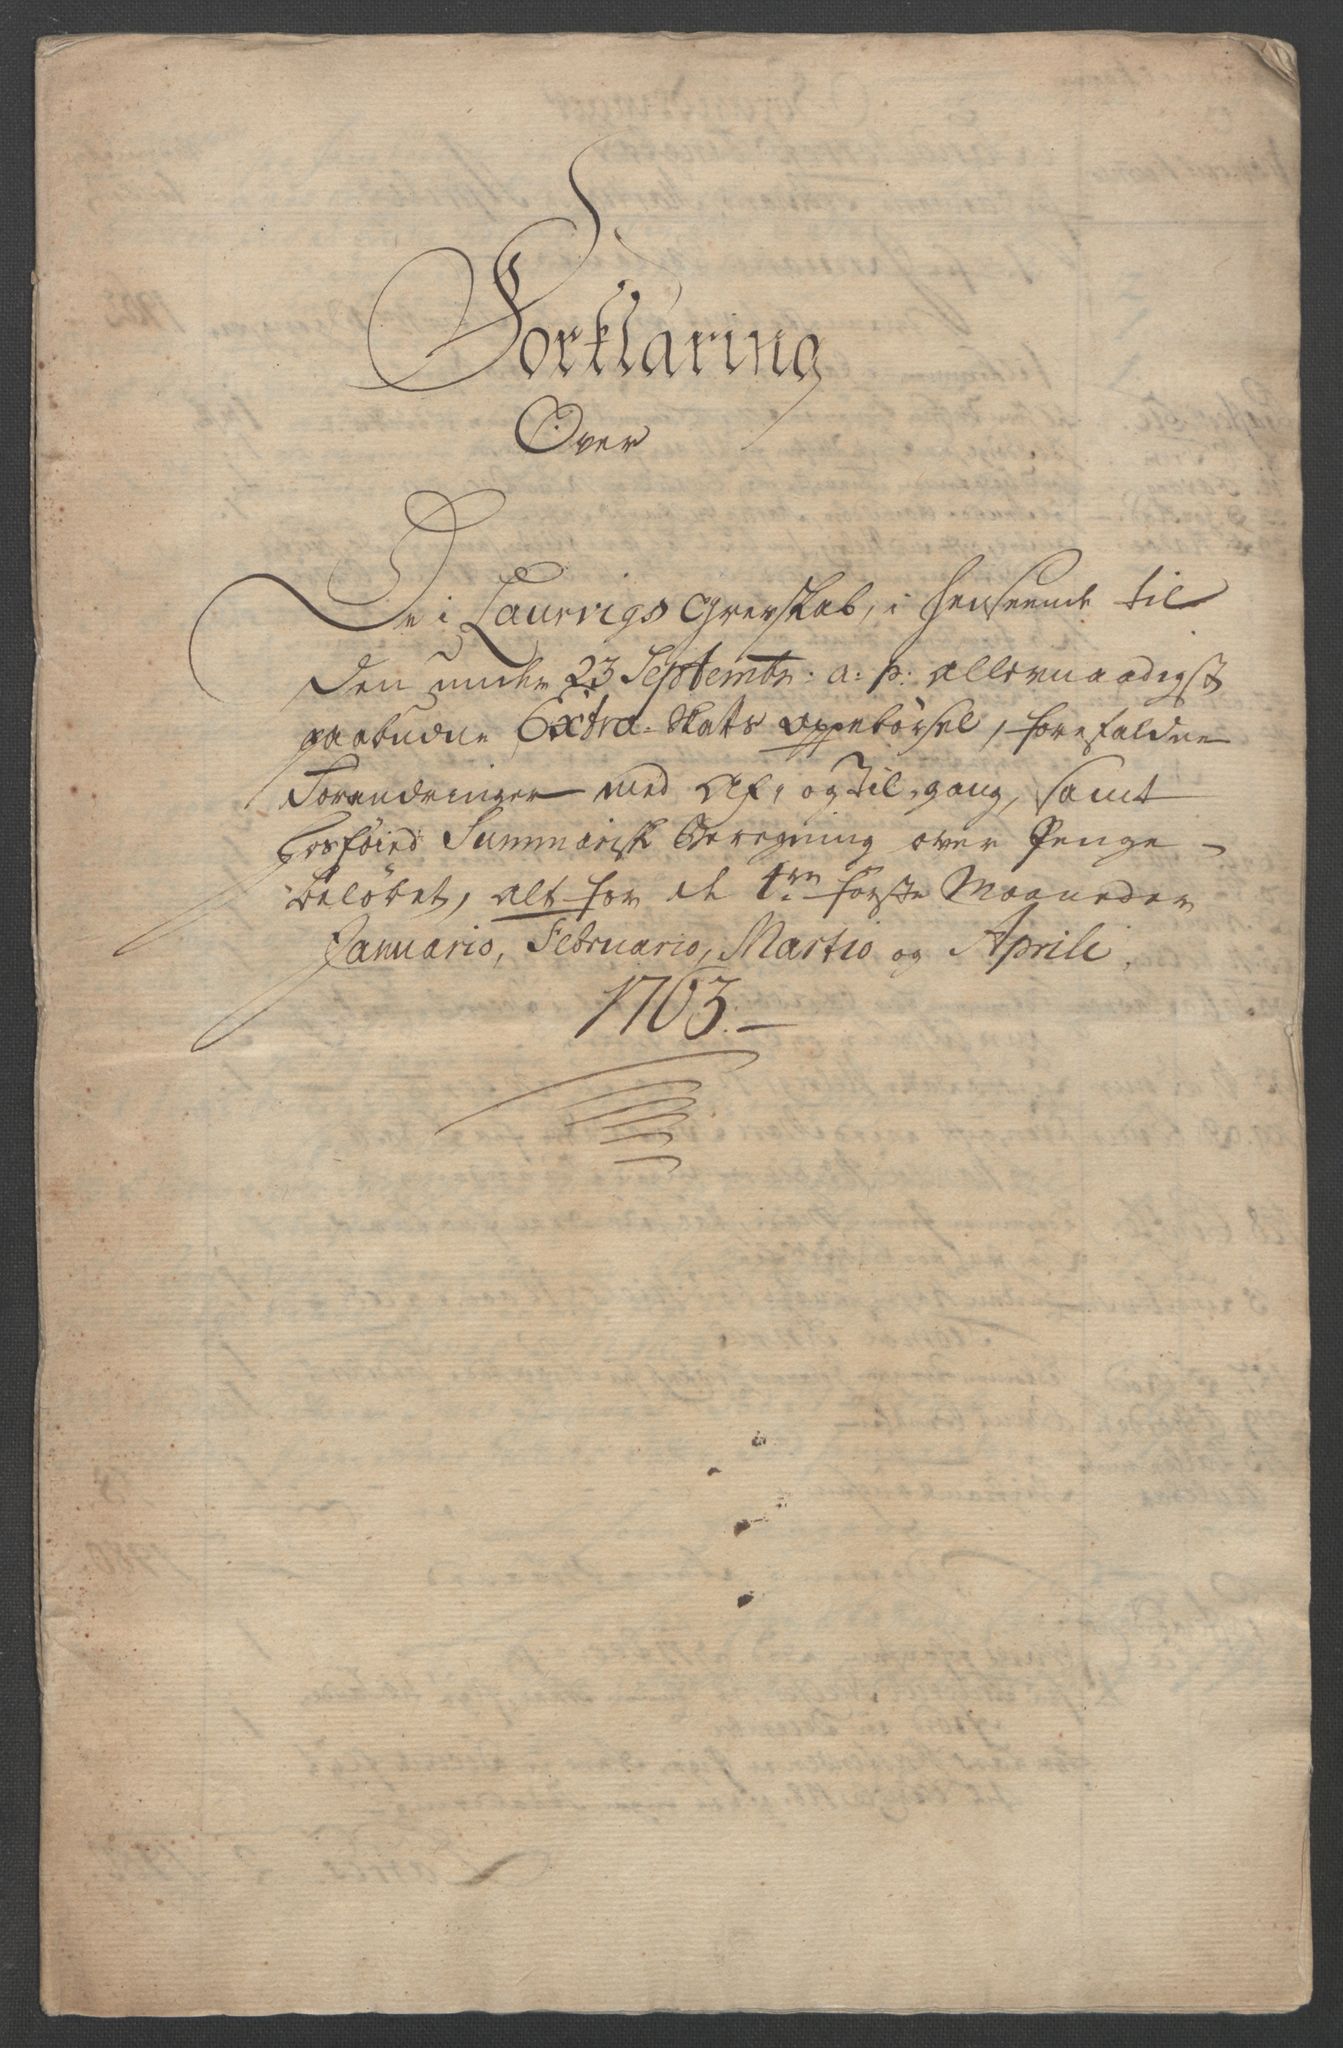 Forklaring
Over
De i Laurvigs Grevskab, i henseende til
den under 23 Septembr: a: p: allernaadigst
paabudne Extra-Skats oppebörsel, forefaldne
Forandringer med Af- og Til-gang, samt
hosföied Summarisk Beregning over Penge-
beløbet, alt for de förste Maaneder
Januario, Februario, Martio og Aprili.
1763.